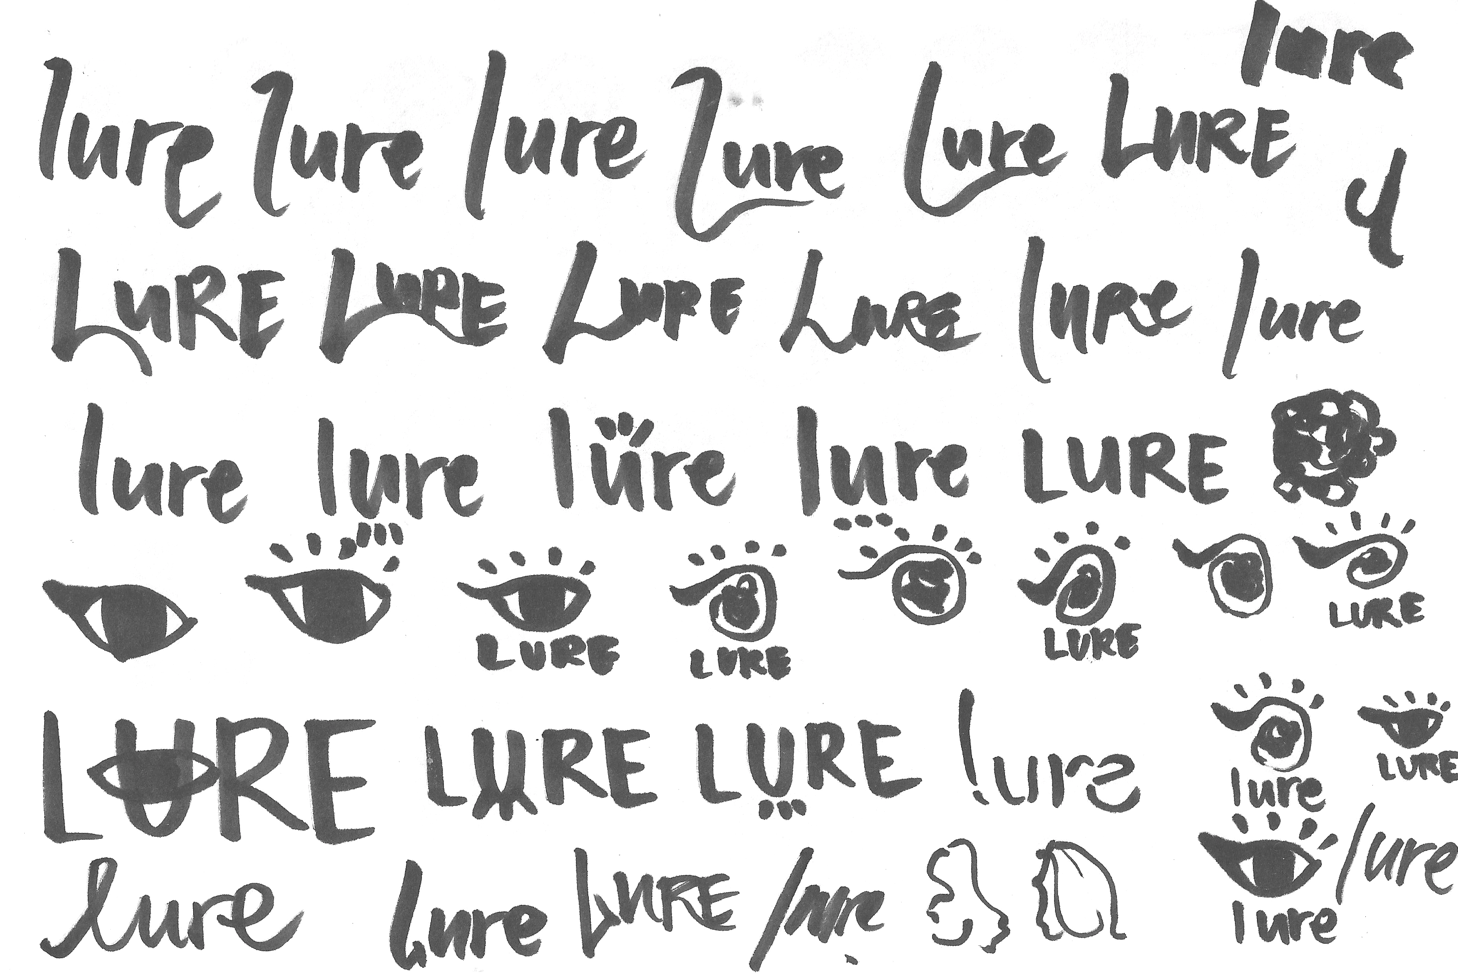 lure
lure lure lure lure lure LURE
LURE LURE LURE LURE lure lure
lure lure lüre lure LURE
LURE LURE LURE LURE
LURE LURE LURE lure lure LURE
lure lure LURE lure lure lure